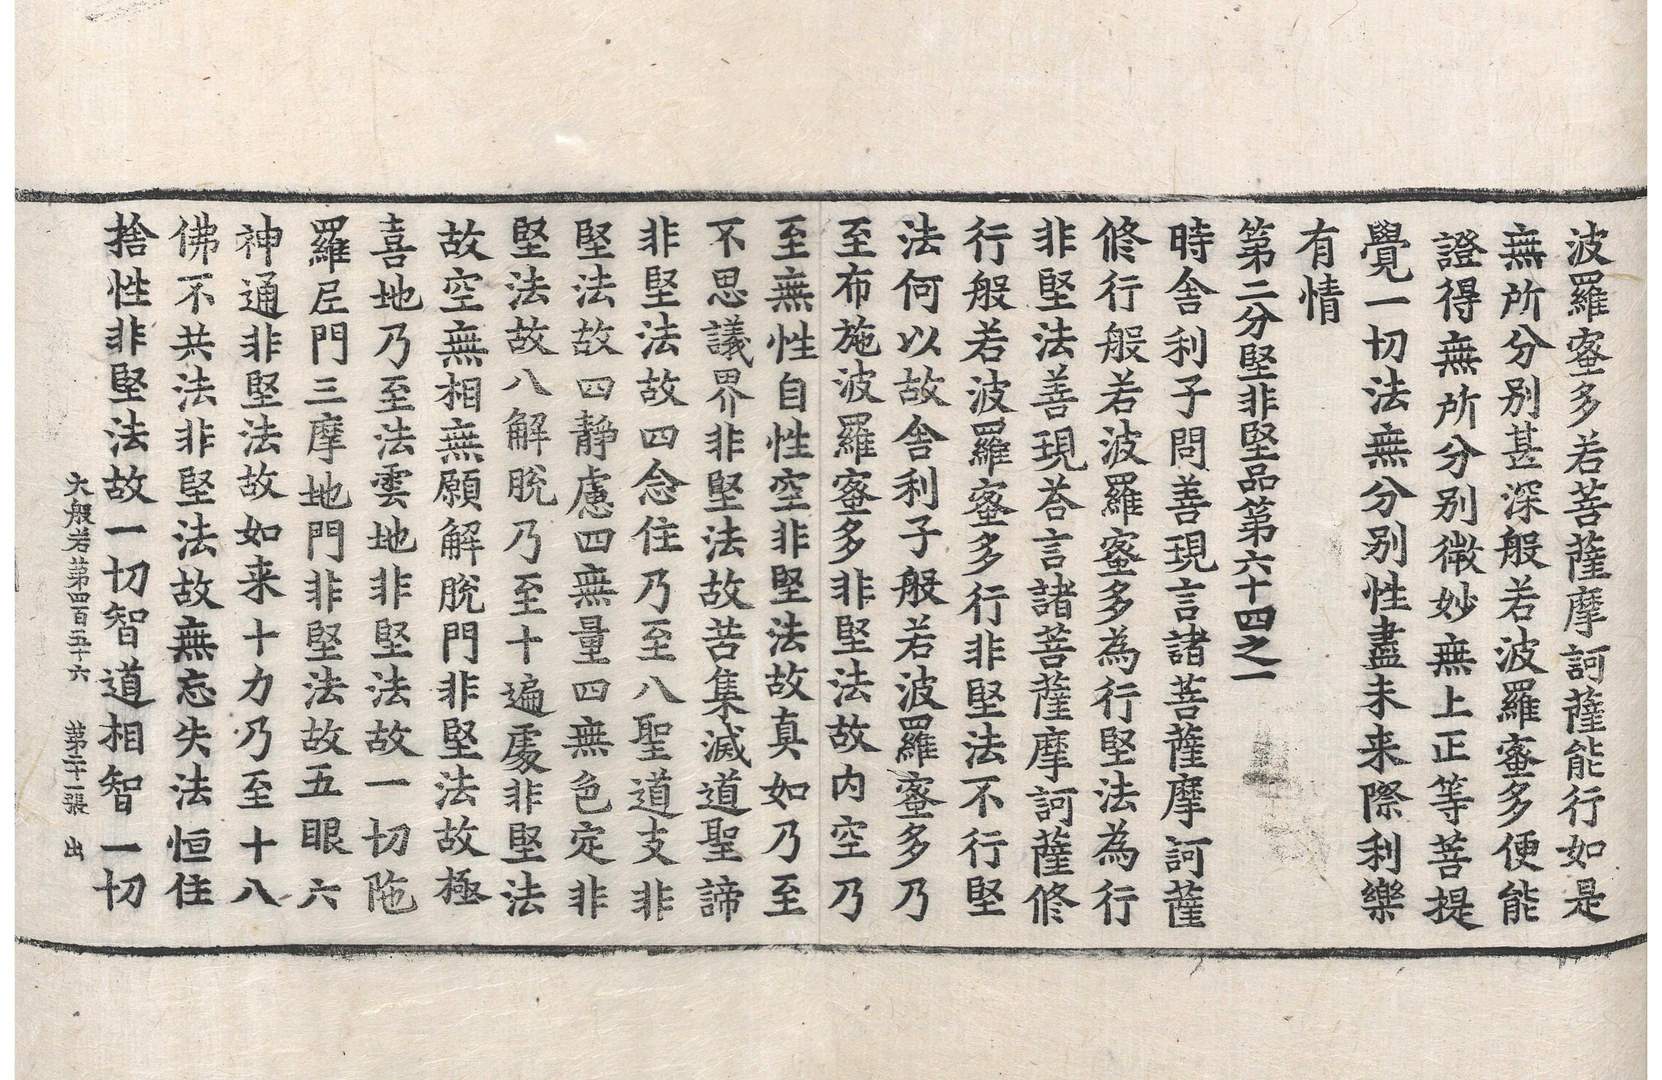 波羅蜜多若菩薩摩訶薩能行如是
無所分別甚深般若波羅蜜多便能
證得無所分別微妙無上正等菩提
覺一切法無分別性盡未来際利樂
有情
第二分堅非堅品第六十四之一
時舍利子問善現言諸菩薩摩訶薩
修行般若波羅蜜多為行堅法為行
非堅法善現荅言諸菩薩摩訶薩修
行般若波羅蜜多行非堅法不行堅
法何以故舍利子般若波羅蜜多乃
至布施波羅蜜多非堅法故内空乃
至無性自性空非堅法故真如乃至
不思議界非堅法故苦集滅道聖諦
非堅法故四念住乃至八聖道支非
堅法故四靜慮四無量四無色定非
堅法故八解脫乃至十遍處非堅法
故空無相無願解脫門非堅法故極
喜地乃至法雲地非堅法故一切陁
羅尼門三摩地門非堅法故五眼六
神通非堅法故如来十力乃至十八
佛不共法非堅法故無忘失法恒住
捨性非堅法故一切智道相智一切
大般若第四百五十六 第二十一張 出